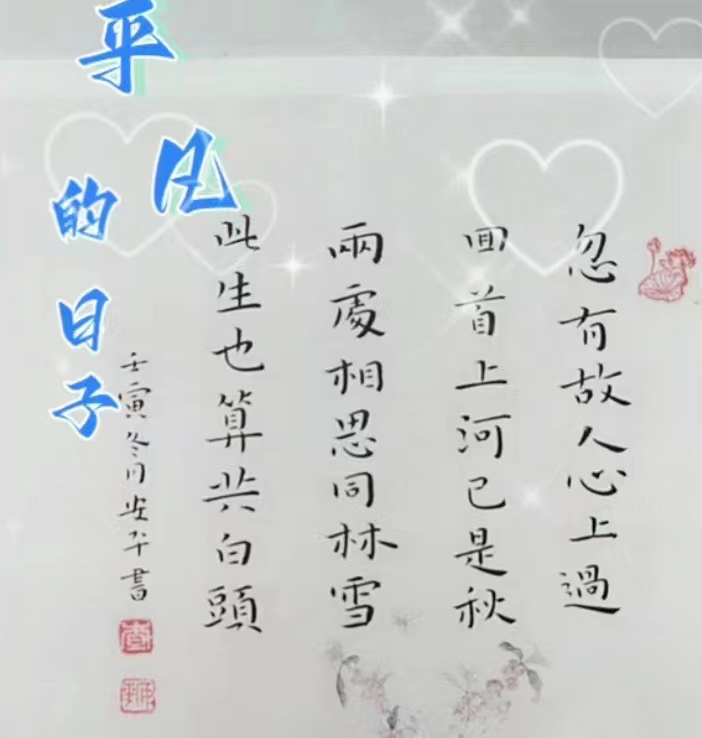 平凡的日子
忽有故人心上過
回首上河已是秋
兩處相思同林雪
此生也算共白頭
壬寅冬月安平書